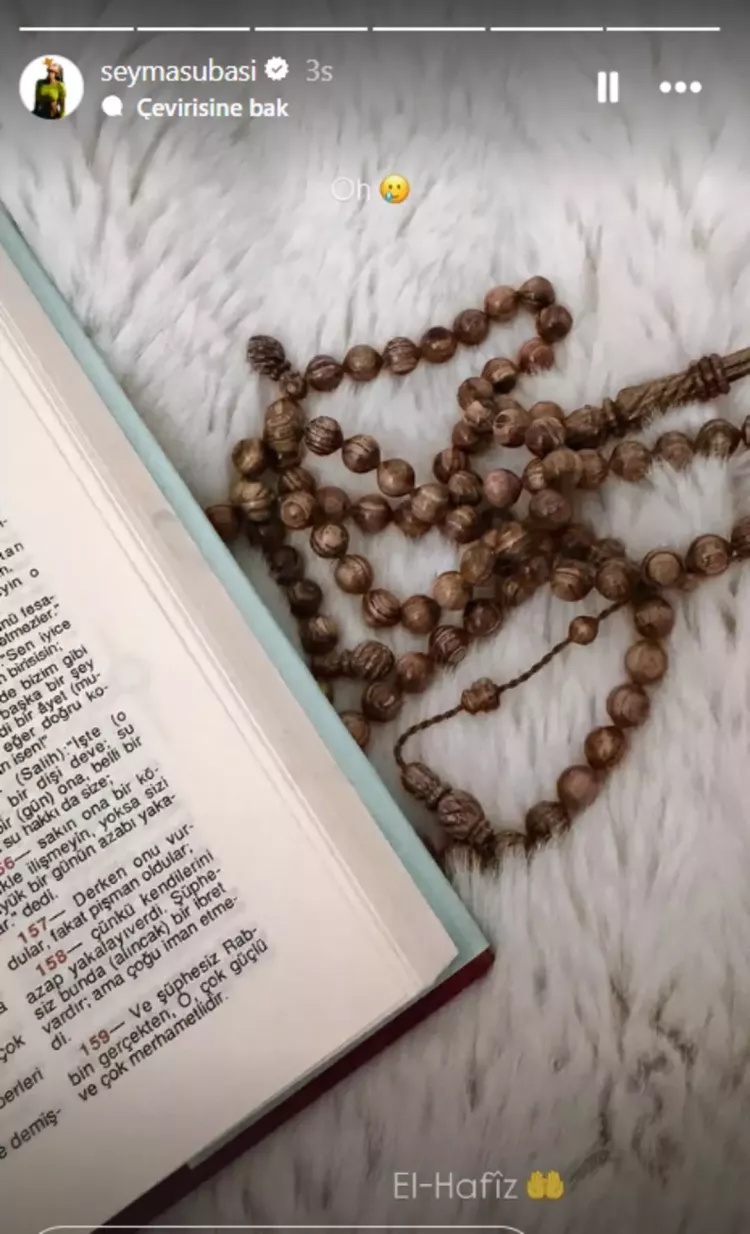 seymasubasi 3s
Çevirisine bak
Oh
tan
yin o
nü fesa-
etmezler."
"Sen iyice
n birisisin;
de bizim gibi
başka bir şey
di bir âyet (mu-
eğer doğru ko-
n isen!"
(Salih): "İşte (o
bir dişi deve; su
bir (gün) ona, belli bir
su hakkı da size;
56— sakın ona bir kö-
kle ilişmeyin, yoksa sizi
yük bir günün azabı yaka-
ar." dedi.
157— Derken onu vur-
dular, fakat pişman oldular;
158— çünkü kendilerini
azap yakalayıverdi. Şüphe-
siz bunda (alıncak) bir ibret
vardır; ama çoğu iman etme-
di.
159— Ve şüphesiz Rab-
bin gerçekten, O, çok güçlü
ve çok merhametlidir.
çok
berleri
e demiş-
El-Hafîz